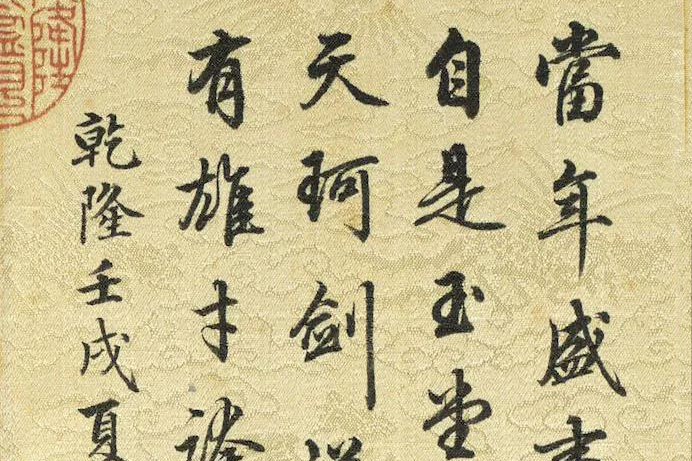 當年盛事
自是玉堂
天珂剑
有雄才
乾隆壬戌夏